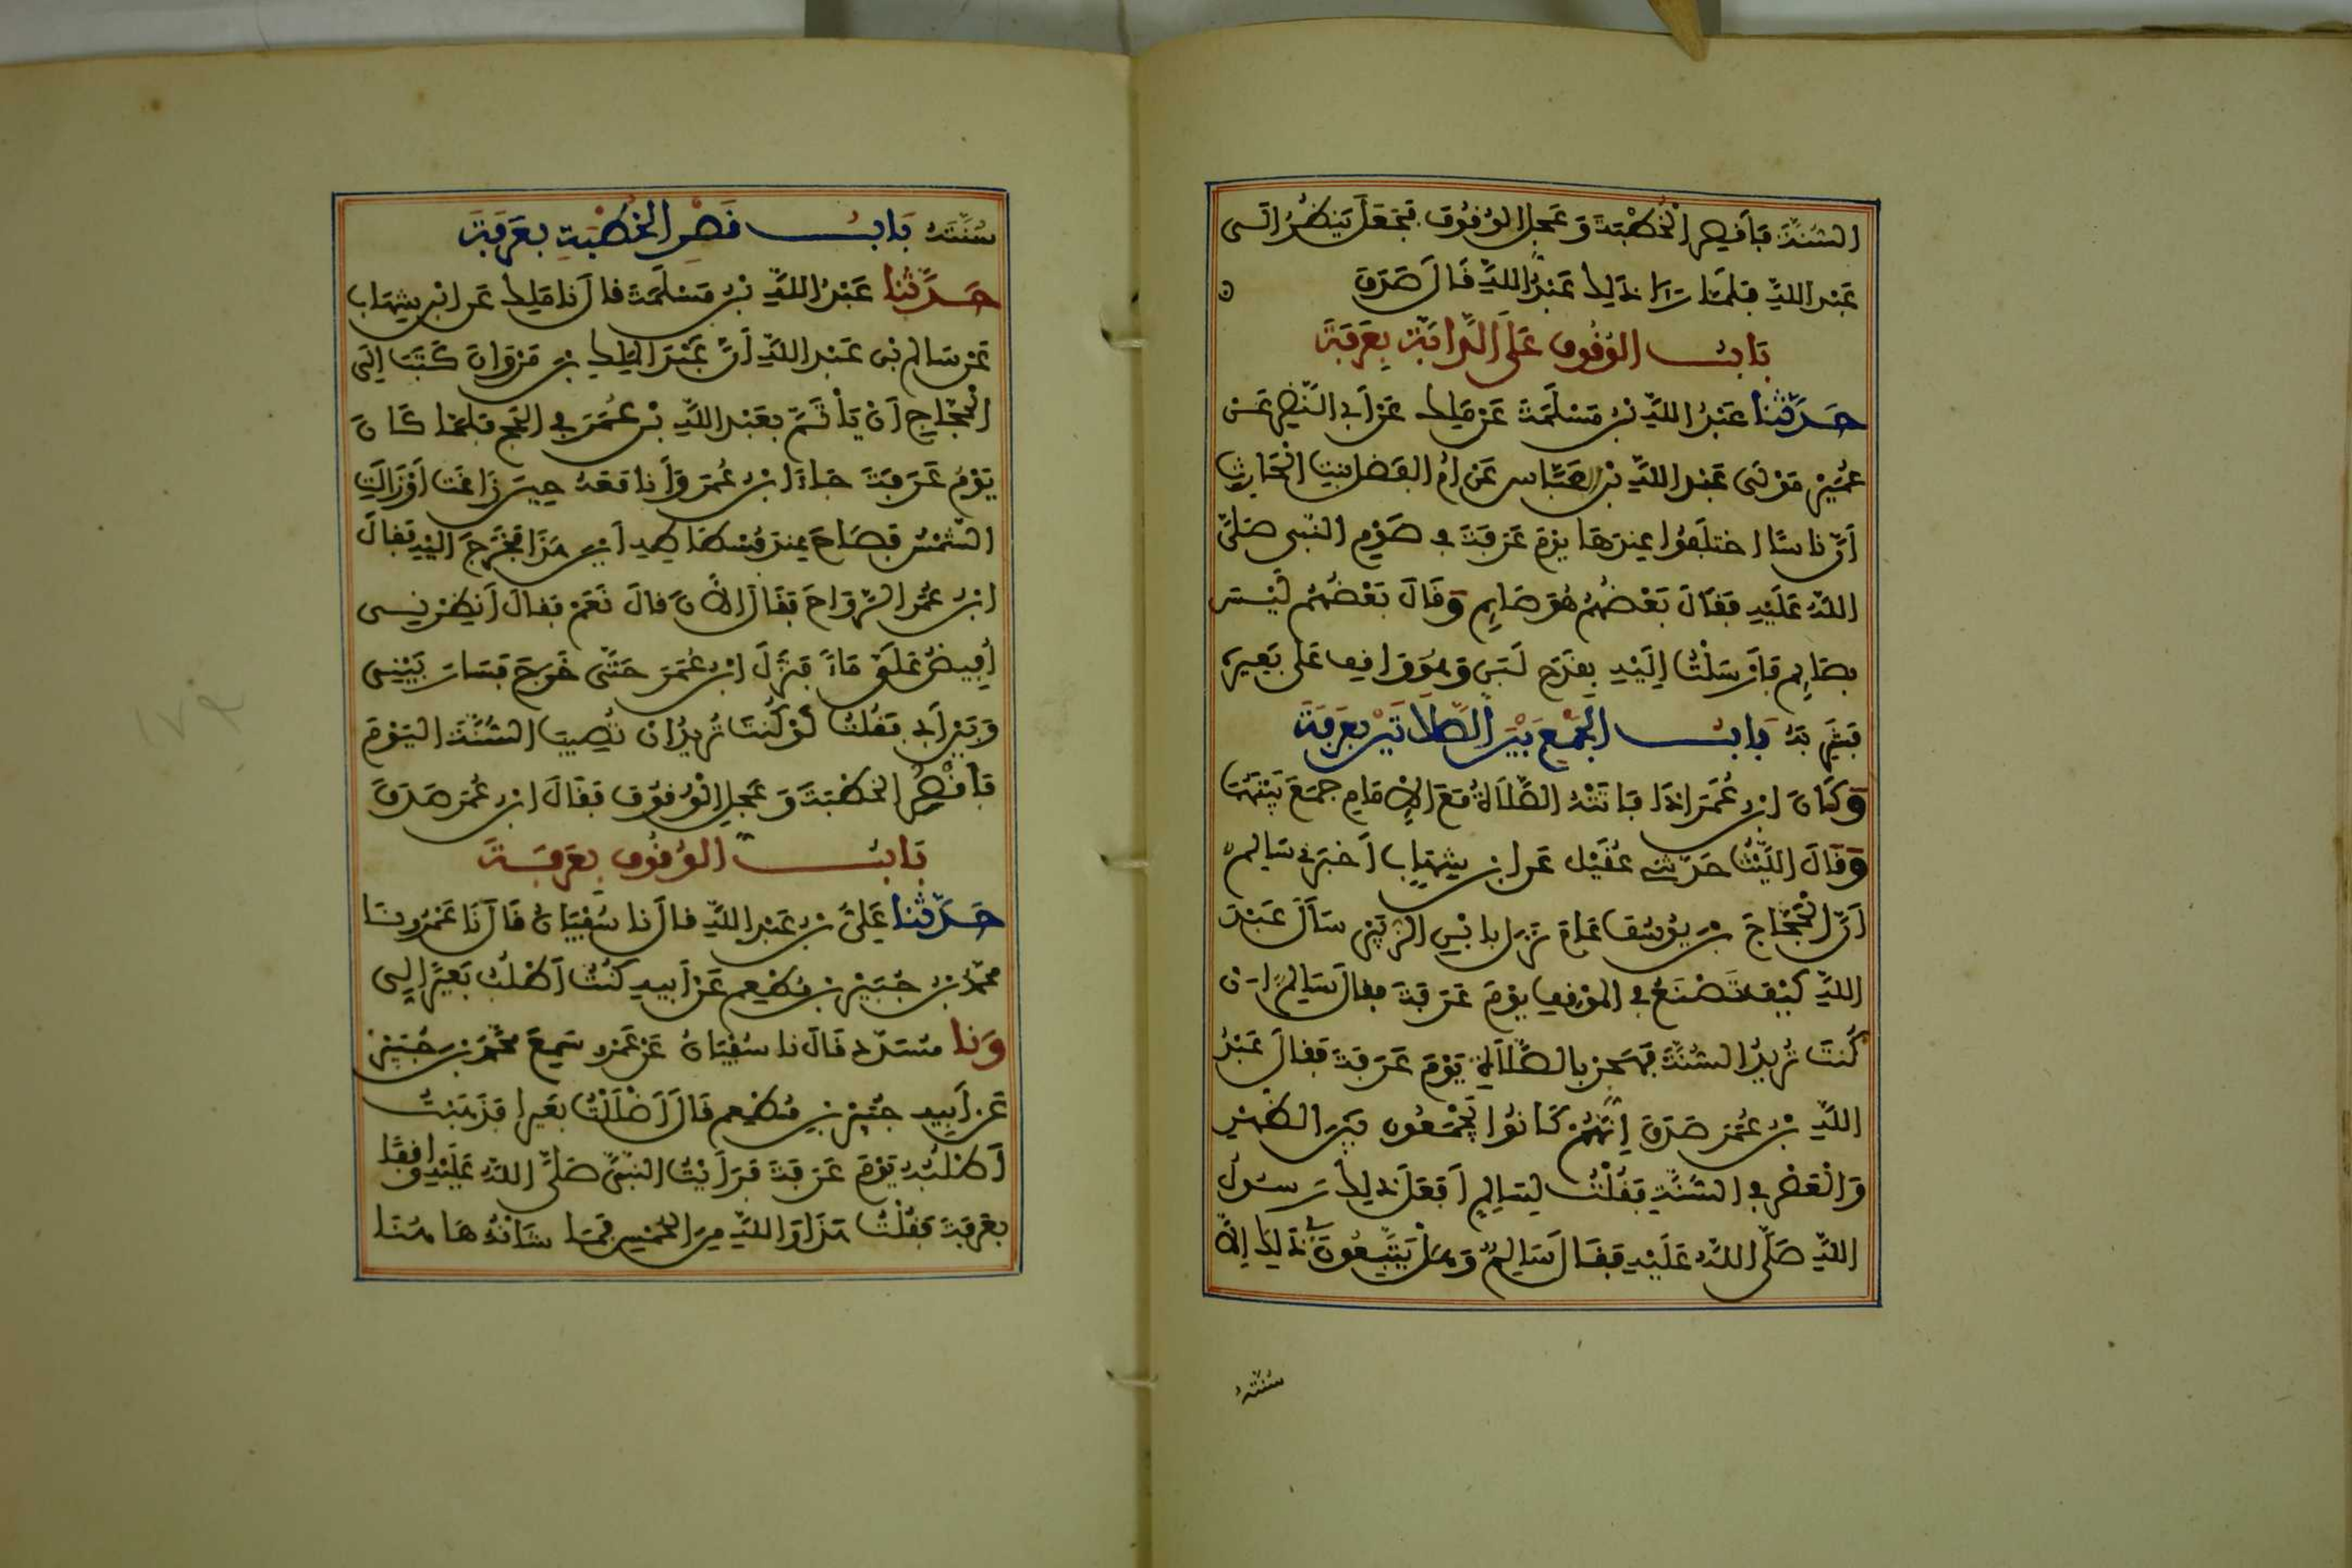 السُّنَّةَ فَأَقْصِرِ الْخُطْبَةَ وَعَجِّلِ الوُقُوفَ فَجَعَلَ يَنظُرُ إلَى
عَبْدِ اللَّهِ فَلَمَّا رَءَا ذَلِكَ عَبْدُ اللَّهِ قَالَ صَدَقَ
بَابُ الوُقُوفِ عَلَى الدَّابَّةِ بِعَرَفَةَ
حَدَّثَنا عَبْدُ اللَّهِ بْنُ مَسْلَمَةَ عَنْ مَلِكٍ عَنْ أَبِي النَّضْرِ عَنْ
عُمَيْرٍ مَوْلَى عَبْدِ اللَّهِ بْنِ العَبَّاسِ عَنْ أُمِّ الفَضْلِ بِنتِ الْحَارِثِ
أَنَّ نَاسًا اختَلَفُوا عِندَهَا يَوْمَ عَرَفَةَ فِي صَوْمِ النَّبِي صَلَّى
اللَّهُ عَلَيْهِ فَقَالَ بَعْضُهُمْ هُوَ صَايِم وَقَالَ بَعْضُهُم لَيْسَ
بِصَايِمٍ فَأَرْسَلْتُ إِلَيْهِ بِقَدَحِ لَبَنٍ وَهُوَ وَاقِف عَلَى بَعِيرِهِ
فَشَرِبَهُ بَابُ الجَمْعِ بَيْنَ الصَّلَاتَيْنِ بِعَرَفَةَ
وَكَانَ ابْنُ عُمَرَ إذَا فَاتَتْهُ الصَّلَاةُ مَعَ الإِمَامِ جَمَعَ بَيْنَهُمَا
وَقَالَ اللَّيْثُ حَدَّثَنِي عُقَيْل عَنِ ابْنِ شِهَابٍ أَخْبَرَنِي سَالِم
أَنَّ الْحَجَّاجَ بْنَ يُوسُفَ عَامَ نَزَلَ بِابْنِ الزُّبَيْرِ سَأَلَ عَبْدَ
اللَّهِ كَيْفَ تَصْنَعُ فِي المَوْقِفِ يَوْمَ عَرَفَةَ فقالَ سَالِمٌ إن
كُنتَ تُرِيدُ السُّنَّةَ فَهَجِّرْ بِالصَّلَاةِ يَوْمَ عَرَفَةَ فَقَالَ عَبْدُ
اللَّهِ بْنُ عُمَرَ صَدَقَ إِنَّهُمْ كَانُوا يَجْمَعُونَ بَيْنَ الظُّهْرِ
وَالْعَصْرِ فِي السُّنَّةِ فَقُلْتُ لِسَالِمٍ أَفَعَلَ ذَلِكَ رَسُولُ
اللَّهِ صَلَّى اللَّهُ عَلَيْهِ فَقَالَ سَالِمٌ وَهَلْ يَتَّبِعُونَ فِي ذَلِكَ إِلَّا
سُنَّتَهُ
سُنَّتَهُ بَابُ قَصْرِ الخُطْبَةِ بِعَرَفَةَ
حَدَّثَنا عَبْدُ اللَّهِ بْنُ مَسْلَمَةَ قَالَ نا مَلِك عَنِ ابْنِ شِهَاب
عَنْ سَالِمِ بْنِ عَبْدِ اللَّهِ أَنَّ عَبْدَ المَلِكِ بْنَ مَرْوَانَ كَتَبَ إِلَى
الْحَجَّاجِ أَنْ يَأْتَمَّ بِعَبْدِ اللَّهِ بْنِ عُمَرَ فِي الحَجِّ فَلَمَّا كَانَ
يَوْمُ عَرَفَةَ جَاءَ ابْنُ عُمَرَ وَأَنا مَعَهُ حِينَ زَاغَت أَوْ زَالَتِ
الشَّمْسُ فَصَاحَ عِندَ فُسْطَاطِهِ أَيْنَ هَذَا فَخَرَجَ إِلَيْهِ فَقَالَ
ابْنُ عُمَرَ الرَّوَاحَ فَقَالَ الآنَ قَالَ نَعَمْ فَقَالَ أَنظِرْنِي
أُفِيضُ عَلَيَّ مَاءً فَنَزَلَ ابْنُ عُمَرَ حَتَّى خَرَجَ فَسَارَ بَيْنِي
وَبَيْنَ أَبِي فَقُلْتُ لَوْ كُنتَ تُرِيدُ أنْ تُصِيبَ السُّنَّةَ اليَوْمَ
فَأَقْصِرِ الخُطْبَةَ وَعَجِّلِ الْوُقُوفَ فَقَالَ ابْنُ عُمَرَ صَدَقَ
بَابُ الوُقُوفِ بِعَرَفَةَ
حَدَّثَنا عَلِيُّ بْنُ عَبْدِ اللَّهِ قالَ نا سُفْيَانُ قَالَ نَا عَمْرٌو نَا
مُحَمَّدُ بْنُ جُبَيْرِ بْنِ مُطْعِمٍ عَنْ أَبِيهِ كُنتُ أَطْلُبُ بَعِيرًا لِي
وَنا مُسَدَّد قَالَ نا سُفْيَانُ عَنْ عَمْرٍو سَمِعَ مُحَمَّدَ بْنَ جُبَيْرٍ
عَنْ أَبِيهِ جُبَيْرِ بْنِ مُطْعِمٍ قَالَ أَضْلَلْتُ بَعِيرا فَذَهَبْتُ
أَطْلُبُهُ يَوْمَ عَرَفَةَ فَرَأَيْتُ النَّبِيَّ صَلَّى اللَّهُ عَلَيْهِ وَاقِفًا
بِعَرَفَةَ فَقُلْتُ هَذَا وَاللَّهِ مِنَ الحُمْسِ فَمَا شَأْنُهُ هَاهُنَا